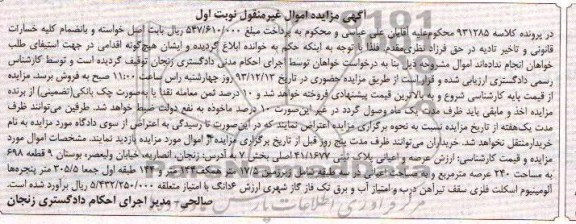 آگهی مزایده اموال غیرمنقول نوبت اول
در پرونده کلاسه ۹۳۱۲۸۵ محکوم‌علیه آقایان علی عباسی و محکوم به پرداخت مبلغ ۵۴۷/۶۱۰/۰۰۰ ریال بابت اصل خواسته و بانضمام کلیه خسارات
قانونی و تاخیر تادیه در حق فرزاد نظری‌مقدم. فلذا با توجه به اینکه حکم به خوانده ابلاغ گردیده و ایشان هیچ‌گونه اقدامی در جهت استیفای طلب
خواهان انجام نداده‌اند اموال مشروحه ذیل بنا به درخواست خواهان توسط اجرای احکام مدنی دادگستری زنجان توقیف گردیده است و توسط کارشناس
رسمی دادگستری ارزیابی شده و قرار است از طریق مزایده حضوری در تاریخ ۹۳/۱۲/۱۳ روز چهارشنبه راس ساعت ۱۱:۰۰ صبح به فروش برسد. مزایده
از قیمت پایه کارشناسی شروع و به بالاترین قیمت پیشنهادی فروخته خواهد شد و ۱۰ درصد ثمن معامله نقدا یا به‌صورت چک بانکی(تضمینی) از برنده
مزایده اخذ و مابقی باید ظرف مدت یک ماه وصول گردد در غیر این‌صورت ۱۰ درصد ماخوذه به نفع دولت ضبط خواهد شد. طرفین می‌توانند ظرف
مدت یک‌هفته از تاریخ مزایده نسبت به نحوه برگزاری مزایده اعتراض نمایند که در این‌صورت تا رسیدگی به اعتراض از سوی دادگاه مورد مزایده به نام
خریدار منتقل نخواهد شد. خریداران می‌توانند ظرف مدت پنج روز قبل از تاریخ برگزاری مزایده از اموال مورد مزایده بازدید نمایند. مشخصات اموال مورد
مزایده و قیمت کارشناسی: ارزش عرصه و اعیانی پلاک ثبتی ۴۱/۱۶۷۷ اصلی بخش ۷ به آدرس: زنجان، انصاریه، خیابان ولیعصر، بوستان ۹ قطعه ۶۹۸
به مساحت ۲۴۰ عرصه مترمربع و به مساحت اعیان در سه طبقه شامل زیرزمین ۱۷/۵ متر همکف ۱۴۴ متر و ۱۴۴ طبقه اول جمعا ۳۰۵/۵ متر پنجره‌ها
آلومینیوم اسکلت فلزی سقف تیرآهن درب و امتیاز آب و برق تک فاز گاز شهری ارزش ۶دانگ با امتیاز متعلقه ۵/۴۳۲/۲۵۰/۰۰۰ ریال برآورده شده است.
صالحی- مدیر اجرای احکام دادگستری زنجان